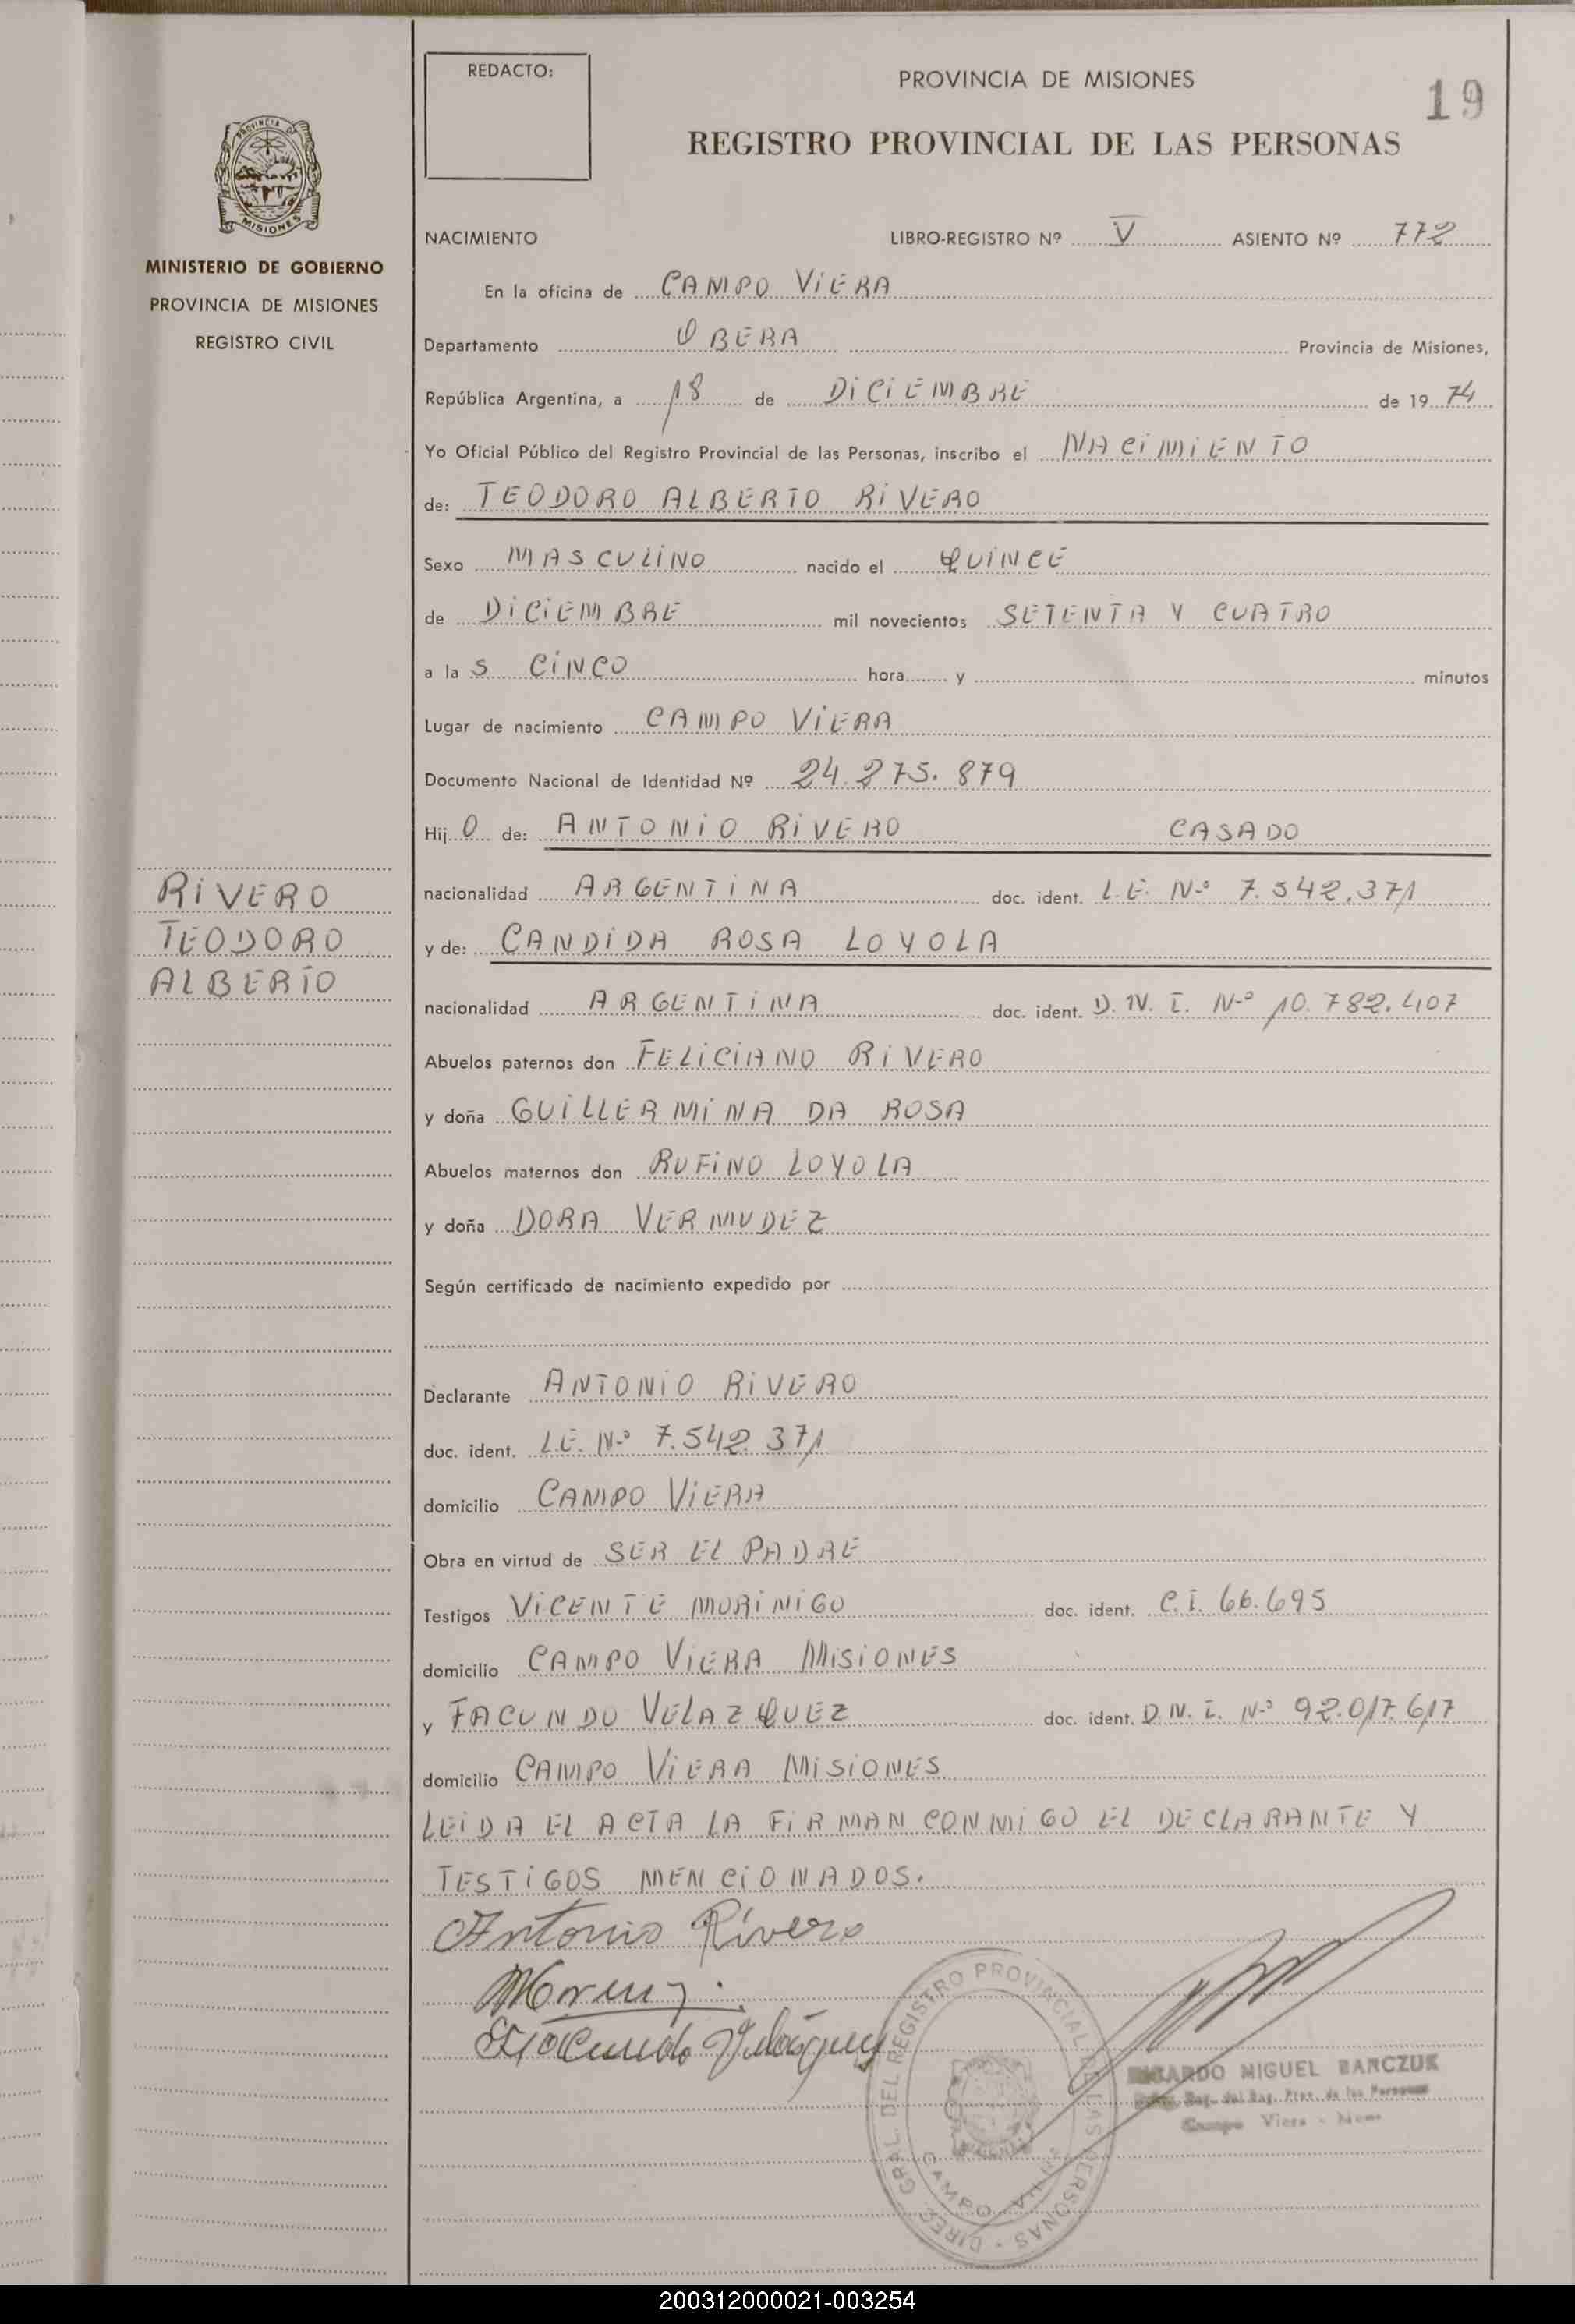 REDACTO:
PROVINCIA DE MISIONES
19
REGISTRO PROVINCIAL DE LAS PERSONAS
PROVINCIA DE
MISIONES
MINISTERIO DE GOBIERNO
PROVINCIA DE MISIONES
REGISTRO CIVIL
NACIMIENTO LIBRO-REGISTRO Nº V ASIENTO Nº 772
En la oficina de CAMPO VIERA
Departamento OBERA Provincia de Misiones,
República Argentina, a 18 de DICIEMBRE de 19 74
Yo Oficial Público del Registro Provincial de las Personas, inscribo el NACIMIENTO
de: TEODORO ALBERTO RIVERO
Sexo MASCULINO nacido el QUINCE
de DICIEMBRE mil novecientos SETENTA Y CUATRO
a la S CINCO hora y minutos
Lugar de nacimiento CAMPO VIERA
Documento Nacional de Identidad Nº 24.275.879
Hij O de: ANTONIO RIVERO CASADO
RIVERO
TEODORO
ALBERTO
nacionalidad ARGENTINA doc. ident. L.E. Nº 7.542.371
y de: CANDIDA ROSA LOYOLA
nacionalidad ARGENTINA doc. ident. D.N.I. Nº 10.782.407
Abuelos paternos don FELICIANO RIVERO
y doña GUILLERMINA DA ROSA
Abuelos maternos don RUFINO LOYOLA
y doña DORA VERMUDEZ
Según certificado de nacimiento expedido por
Declarante ANTONIO RIVERO
doc. ident. L.E. Nº 7.542.371
domicilio CAMPO VIERA
Obra en virtud de SER EL PADRE
Testigos VICENTE MORINIGO doc. ident. C.I. 66.695
domicilio CAMPO VIERA MISIONES
y FACUNDO VELAZQUEZ doc. ident. D.N.I. Nº 92.017.617
domicilio CAMPO VIERA MISIONES
LEIDA EL ACTA LA FIRMAN CONMIGO EL DECLARANTE Y
TESTIGOS MENCIONADOS.
Antonio Rivero
Facundo Velázquez
DIREC. GRAL. DEL REGISTRO PROVINCIAL DE LAS PERSONAS
CAMPO VIERA
RICARDO MIGUEL BANCZUK
Reg. Prov. de las Personas
Campo Viera
200312000021-003254